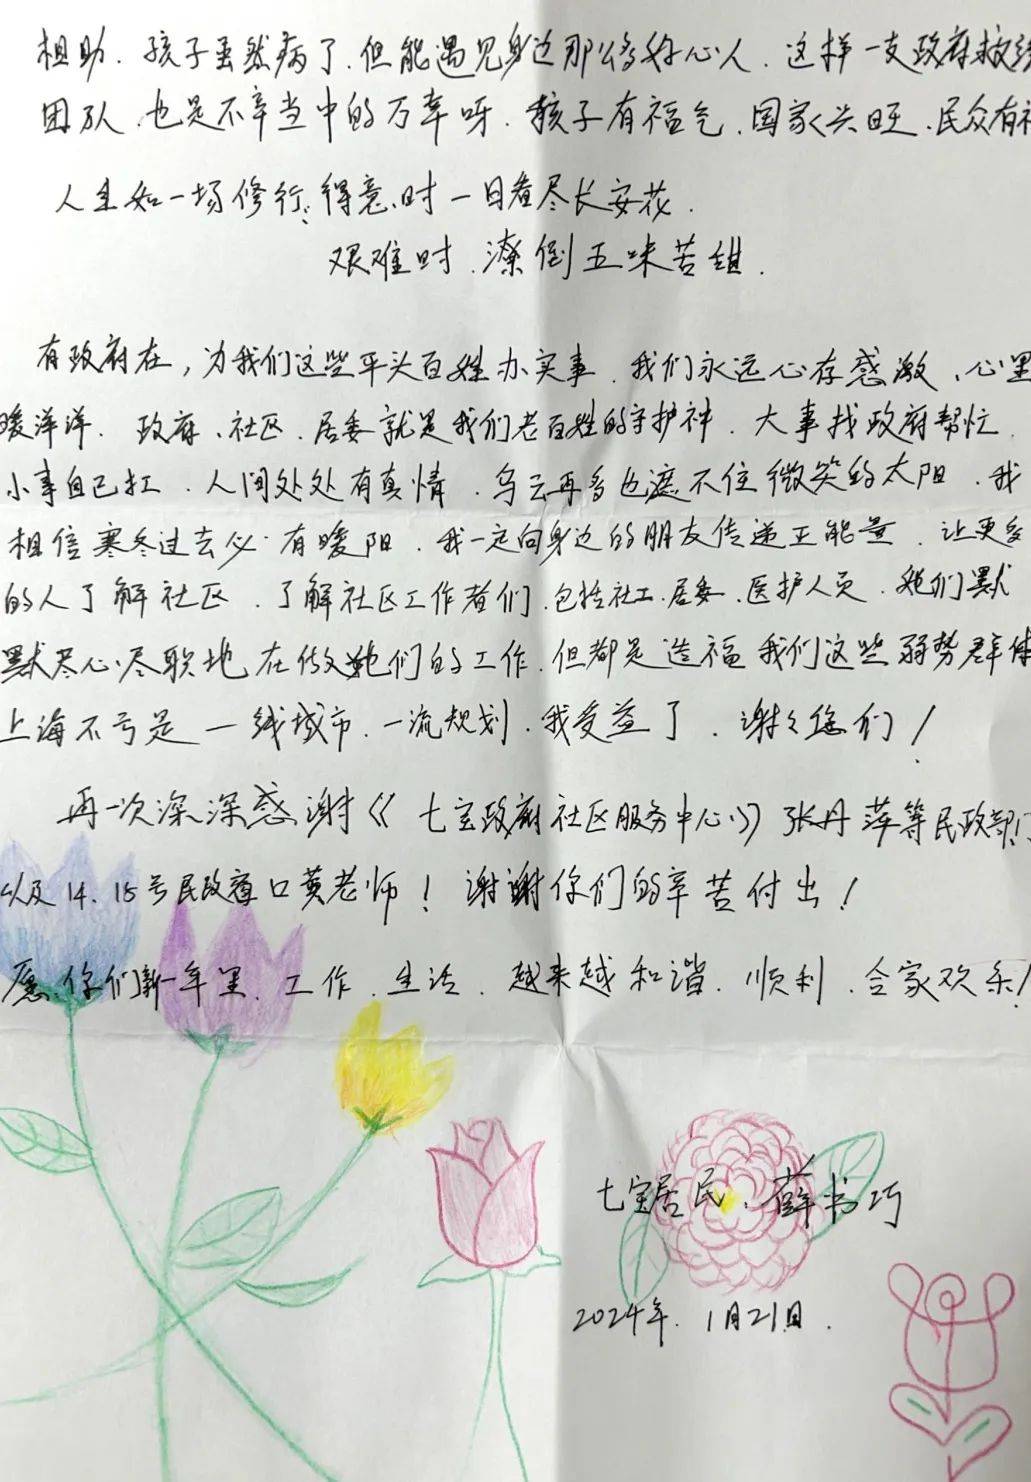 相助.孩子虽然病了.但能遇见身边那么多好心人.这样一支政府救
团队.也是不幸当中的万幸呀.孩子有福气.国家兴旺.民众有
人生如一场修行:得意时一日看尽长安花.
艰难时.潦倒五味苦甜.
有政府在,为我们这些平头百姓办实事.我们永远心存感激、心里
暖洋洋.政府、社区、居委就是我们老百姓的守护神.大事找政府帮忙
小事自己扛.人间处处有真情.乌云再多也遮不住微笑的太阳.我
相信寒冬过去必有暖阳.我一定向身边的朋友传递正能量.让更多
的人了解社区.了解社区工作者们.包括社工.居委.医护人员.她们默
默尽心尽职地在做她们的工作.但都是造福我们这些弱势群体
上海不亏是一线城市.一流规划.我受益了.谢谢您们!
再一次深深感谢《七宝政府社区服务中心》张丹萍等民政部门
以及14、15号民政窗口黄老师!谢谢你们的辛苦付出!
愿你们新一年里.工作.生活.越来越和谐.顺利.合家欢乐!
七宝居民:薛书巧
2024年.1月21日.